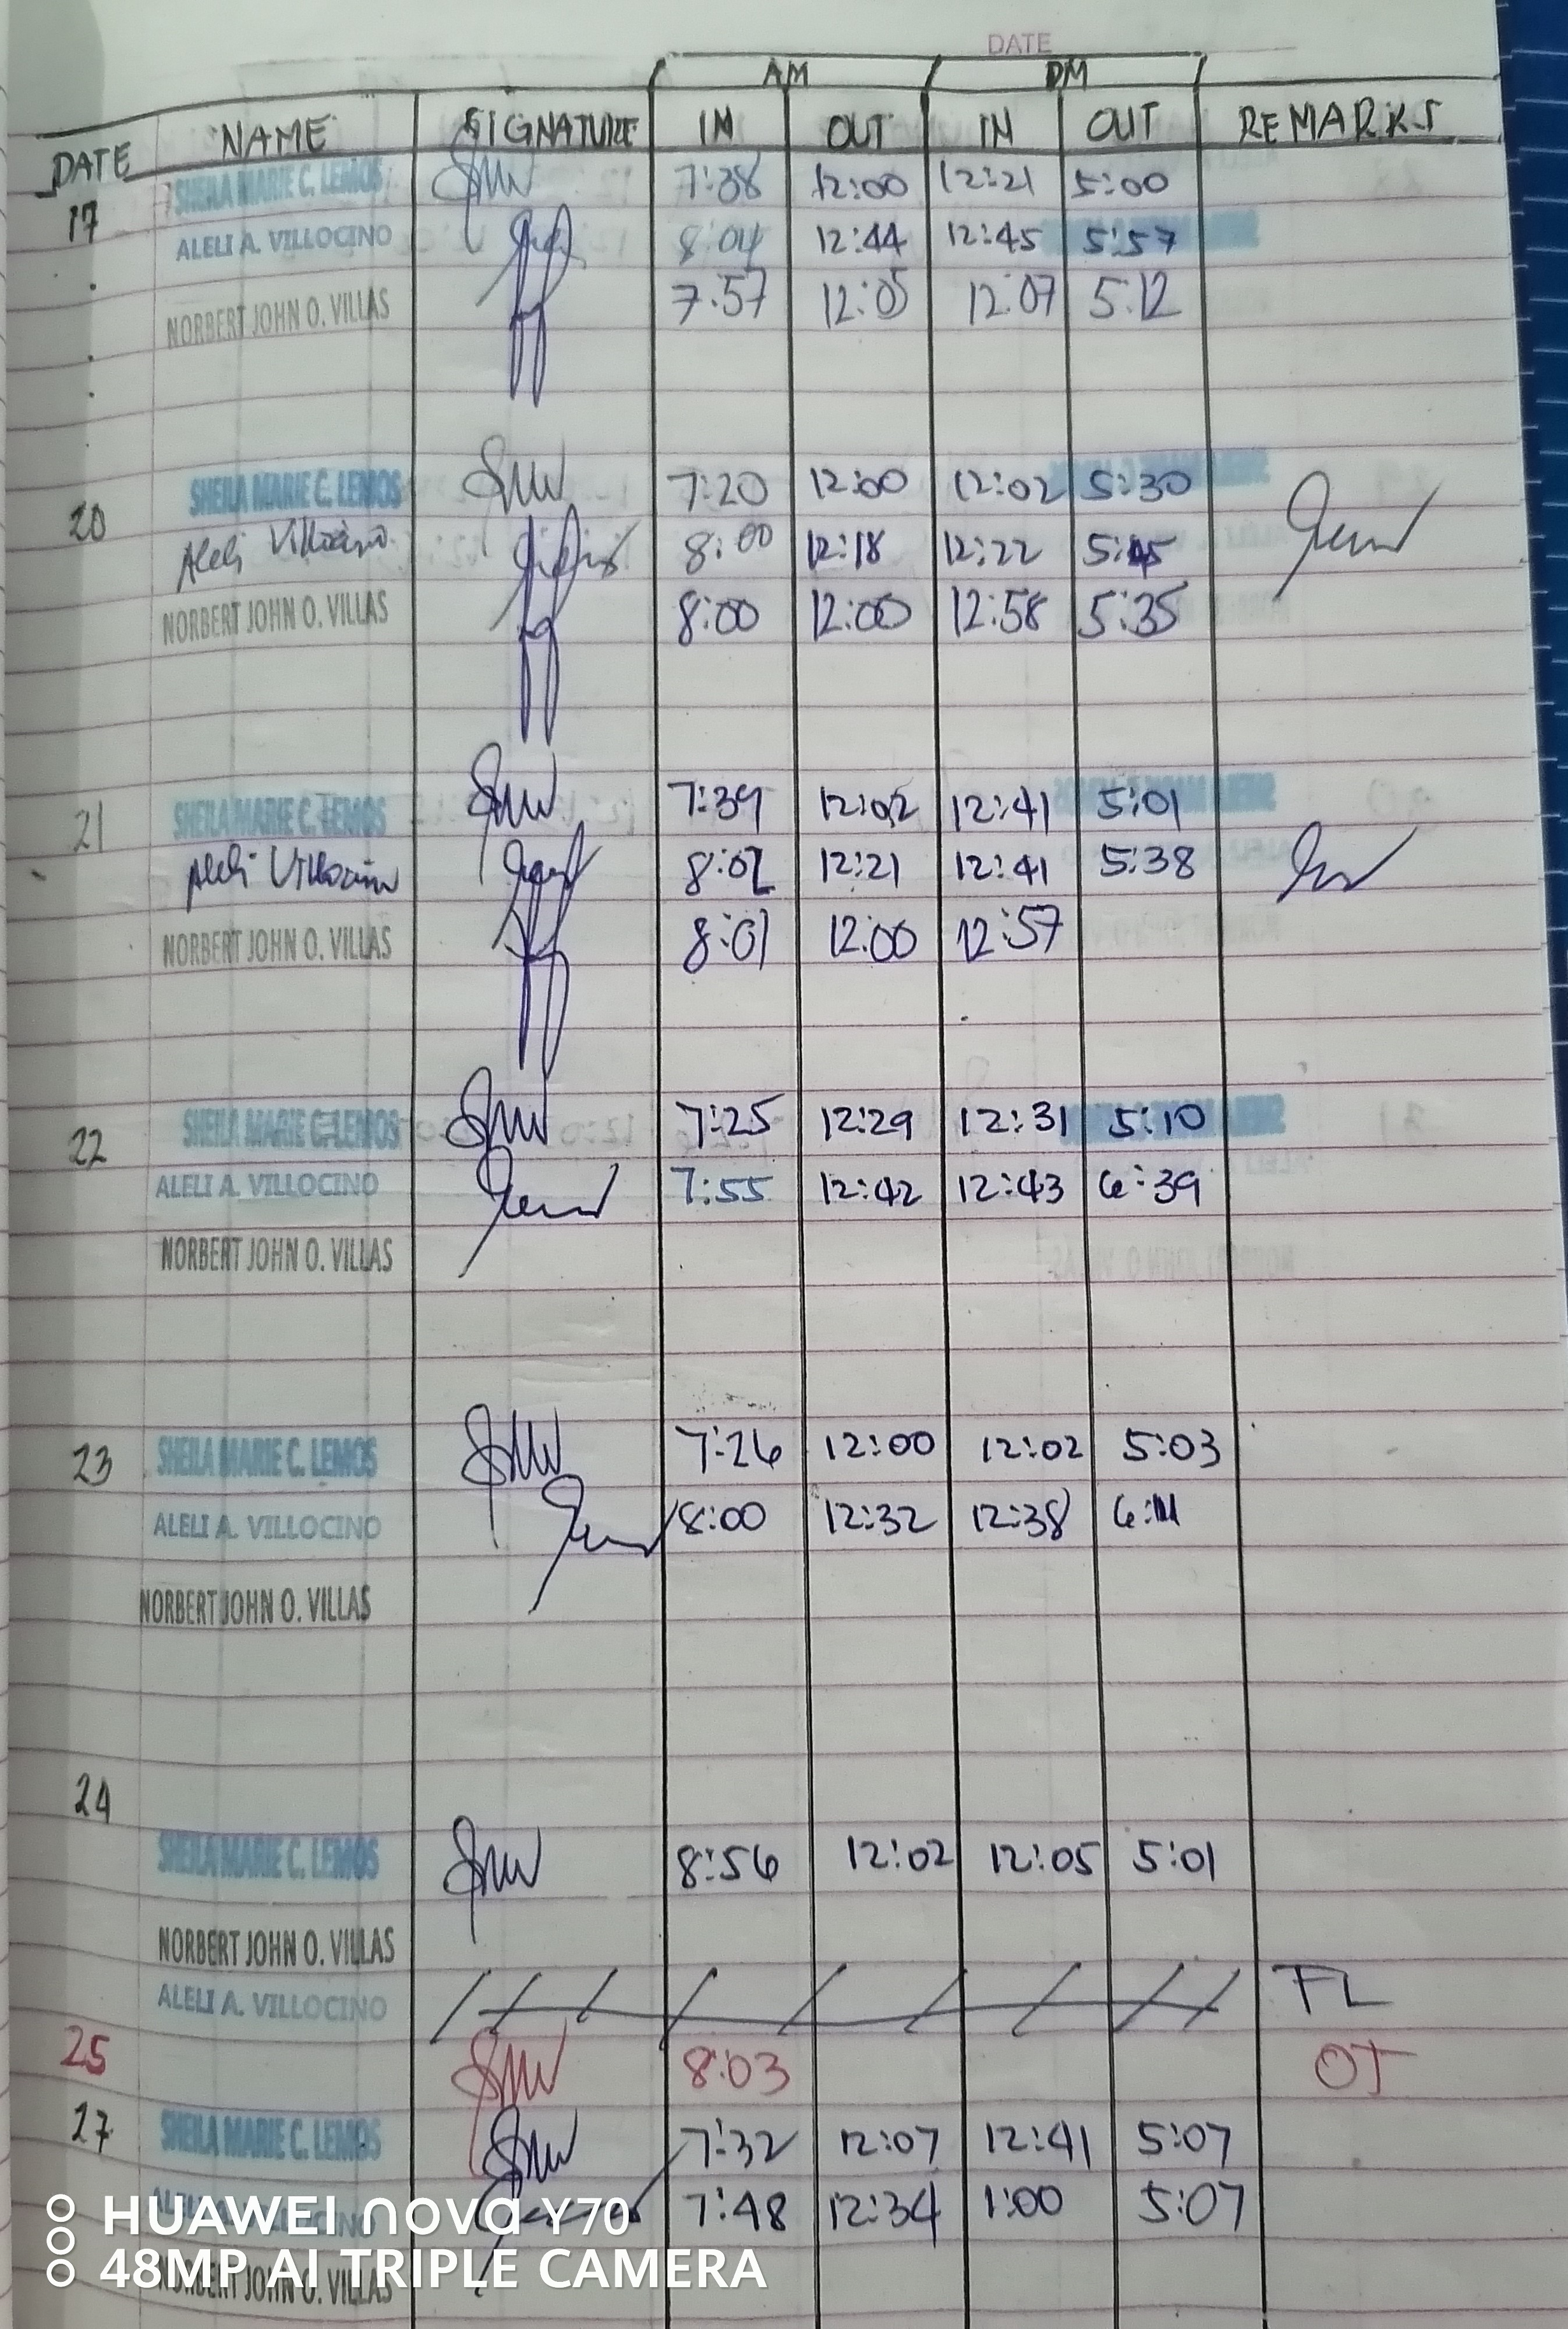 DATE
AM PM
DATE NAME SIGNATURE IN OUT IN OUT REMARKS
17 SHEILA MARIE C. LEMOS 7:38 12:00 12:21 5:00
ALELI A. VILLOCINO 8:04 12:44 12:45 5:57
NORBERT JOHN O. VILLAS 7:57 12:05 12:07 5:12
20 SHEILA MARIE C. LEMOS 7:20 12:00 12:02 5:30
Aleli Villocino 8:00 12:18 12:22 5:45
NORBERT JOHN O. VILLAS 8:00 12:00 12:58 5:35
21 SHEILA MARIE C. LEMOS 7:39 12:02 12:41 5:01
Aleli Villocino 8:02 12:21 12:41 5:38
NORBERT JOHN O. VILLAS 8:01 12:00 12:57
22 SHEILA MARIE C. LEMOS 7:25 12:29 12:31 5:10
ALELI A. VILLOCINO 7:55 12:42 12:43 6:39
NORBERT JOHN O. VILLAS
23 SHEILA MARIE C. LEMOS 7:26 12:00 12:02 5:03
ALELI A. VILLOCINO 8:00 12:32 12:38 6:11
NORBERT JOHN O. VILLAS
24
SHEILA MARIE C. LEMOS 8:56 12:02 12:05 5:01
NORBERT JOHN O. VILLAS
ALELI A. VILLOCINO FL
25 8:03 OT
27 SHEILA MARIE C. LEMOS 7:32 12:07 12:41 5:07
7:48 12:34 1:00 5:07
NORBERT JOHN O. VILLAS
HUAWEI nova Y70
48MP AI TRIPLE CAMERA